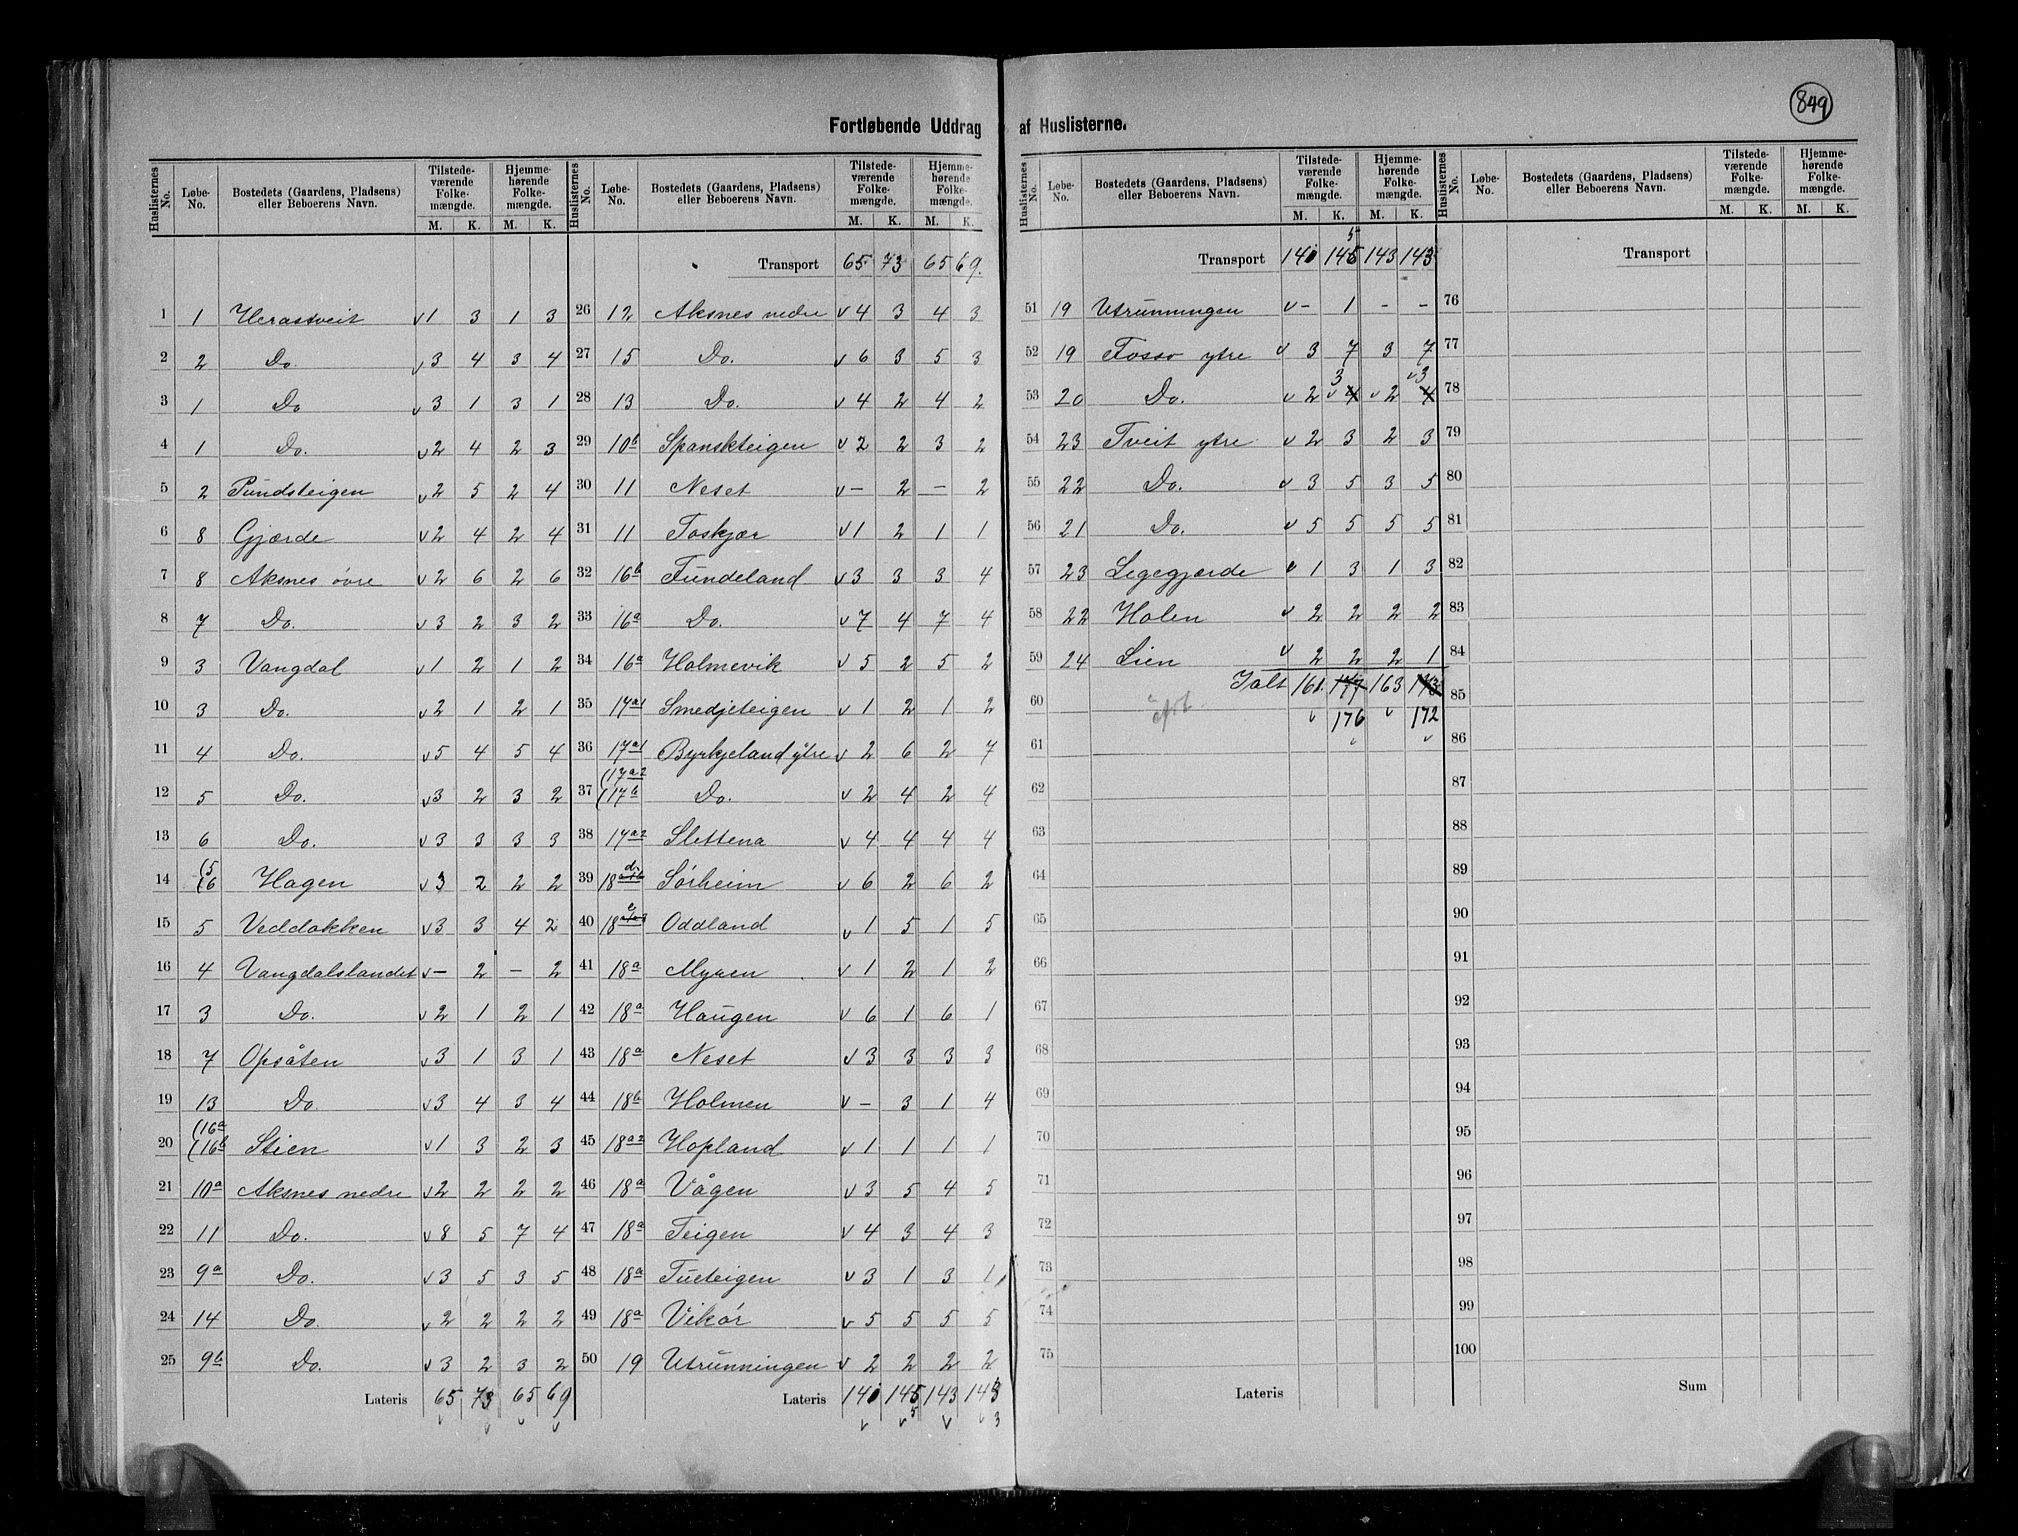 849
Fortløbende Uddrag af Huslisterne.
Huslisternes No. Løbe-No. Bostedets (Gaardens, Pladsens) eller Beboerens Navn. Tilstedeværende Folkemængde. Hjemmehørende Folkemængde. M. K. M. K.
1 1 Herastveit v1 3 1 3
2 2 Do. v3 4 3 4
3 1 Do v3 1 3 1
4 1 Do. v2 4 2 3
5 2 Pundsteigen v2 5 2 4
6 8 Gjærde v2 4 2 4
7 8 Aksnes øvre v2 6 2 6
8 7 Do. v3 2 3 2
9 3 Vangdal v1 2 1 2
10 3 Do. v2 1 2 1
11 4 Do. v5 4 5 4
12 5 Do. v3 2 3 2
13 6 Do. v3 3 3 3
14 (5 (6 Hagen v3 2 2 2
15 5 Veddakken v3 3 4 2
16 4 Vangdalslandet v– 2 – 2
17 3 Do. v2 1 2 1
18 7 Opsåten v3 1 3 1
19 13 Do. v3 4 3 4
20 (16a (16b Stien v1 3 2 3
21 10a Aksnes nedre v2 2 2 2
22 11 Do. v8 5 7 4
23 9a Do. v3 5 3 5
24 14 Do. v2 2 2 2
25 9b Do. v3 2 3 2
Lateris 65 73 65 69
Huslisternes No. Løbe-No. Bostedets (Gaardens, Pladsens) eller Beboerens Navn. Tilstedeværende Folkemængde. Hjemmehørende Folkemængde. M. K. M. K.
Transport 65 73 65 69.
26 12 Aksnes nedre v4 3 4 3
27 15 Do. v6 3 5 3
28 13 Do. v4 2 4 2
29 10b Spanskteigen v2 2 3 2
30 11 Neset v– 2 – 2
31 11 Toskjær v1 2 1 1
32 16b Fundeland v3 3 3 4
33 16a Do. v7 4 7 4
34 16a Holmevik v5 2 5 2
35 17a1 Smedjeteigen v1 2 1 2
36 17a1 Byrkjeland ytre v2 6 2 7
37 (17a2 (17b Do. v2 4 2 4
38 17a2 Slettena v4 4 4 4
39 18 Sørheim v6 2 6 2
40 18 Oddland v1 5 1 5
41 18a Myren v1 2 1 2
42 18a Haugen v6 1 6 1
43 18a Neset v3 3 3 3
44 18b Holmen v– 3 1 4
45 18a2 Hopland v1 1 1 1
46 18a Vågen v3 5 4 5
47 18a Teigen v4 3 4 3
48 18a Tueteigen v3 1 3 1
49 18a Vikør v5 5 5 5
50 19 Utrunningen v2 2 2 2
Lateris 140 145 143 143
5 3
Huslisternes No. Løbe-No. Bostedets (Gaardens, Pladsens) eller Beboerens Navn. Tilstedeværende Folkemængde. Hjemmehørende Folkemængde. M. K. M. K.
5
Transport 140 145 143 143
51 19 Utrunningen v– 1 – –
52 19 Fosso ytre v3 7 3 7
3 v3
53 20 Do. v2 v4 v2 4
54 23 Tveit ytre v2 3 2 3
55 22 Do. v3 5 3 5
56 21 Do. v5 5 5 5
57 23 Legegjærde v1 3 1 3
58 22 Holen v2 2 2 2
59 24 Lien v2 2 2 1
60 Ialt 161 177 163 173
176 172
61
62
63
64
65
66
67
68
69
70
71
72
73
74
75
Lateris
Huslisternes No. Løbe-No. Bostedets (Gaardens, Pladsens) eller Beboerens Navn. Tilstedeværende Folkemængde. Hjemmehørende Folkemængde. M. K. M. K.
Transport
76
77
78
79
80
81
82
83
84
85
86
87
88
89
90
91
92
93
94
95
96
97
98
99
100
Sum